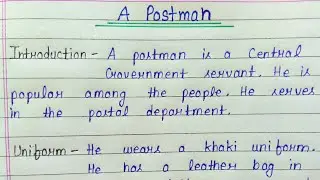 A Postman
Introduction - A postman is a Central
Government servant. He is
popular among the people. He serves
in the postal department.
Uniform - He wears a khaki uniform.
He has a leather bag in